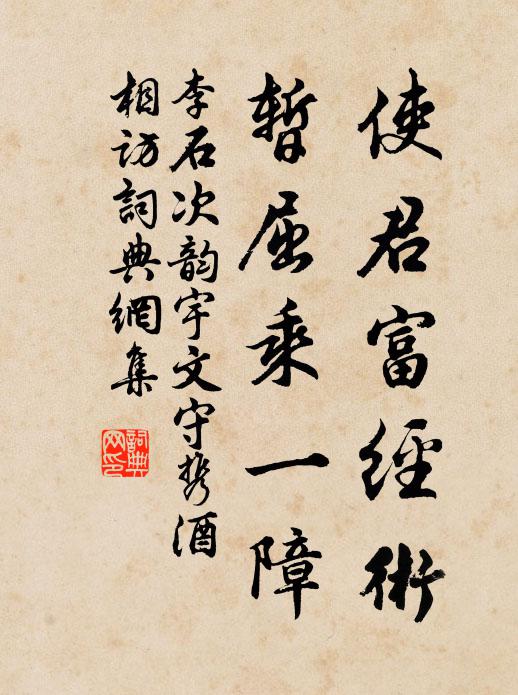 使君富經術
暫屈乘一障
李石次韵宇文守携酒
相訪詞典網集
詞典
网印